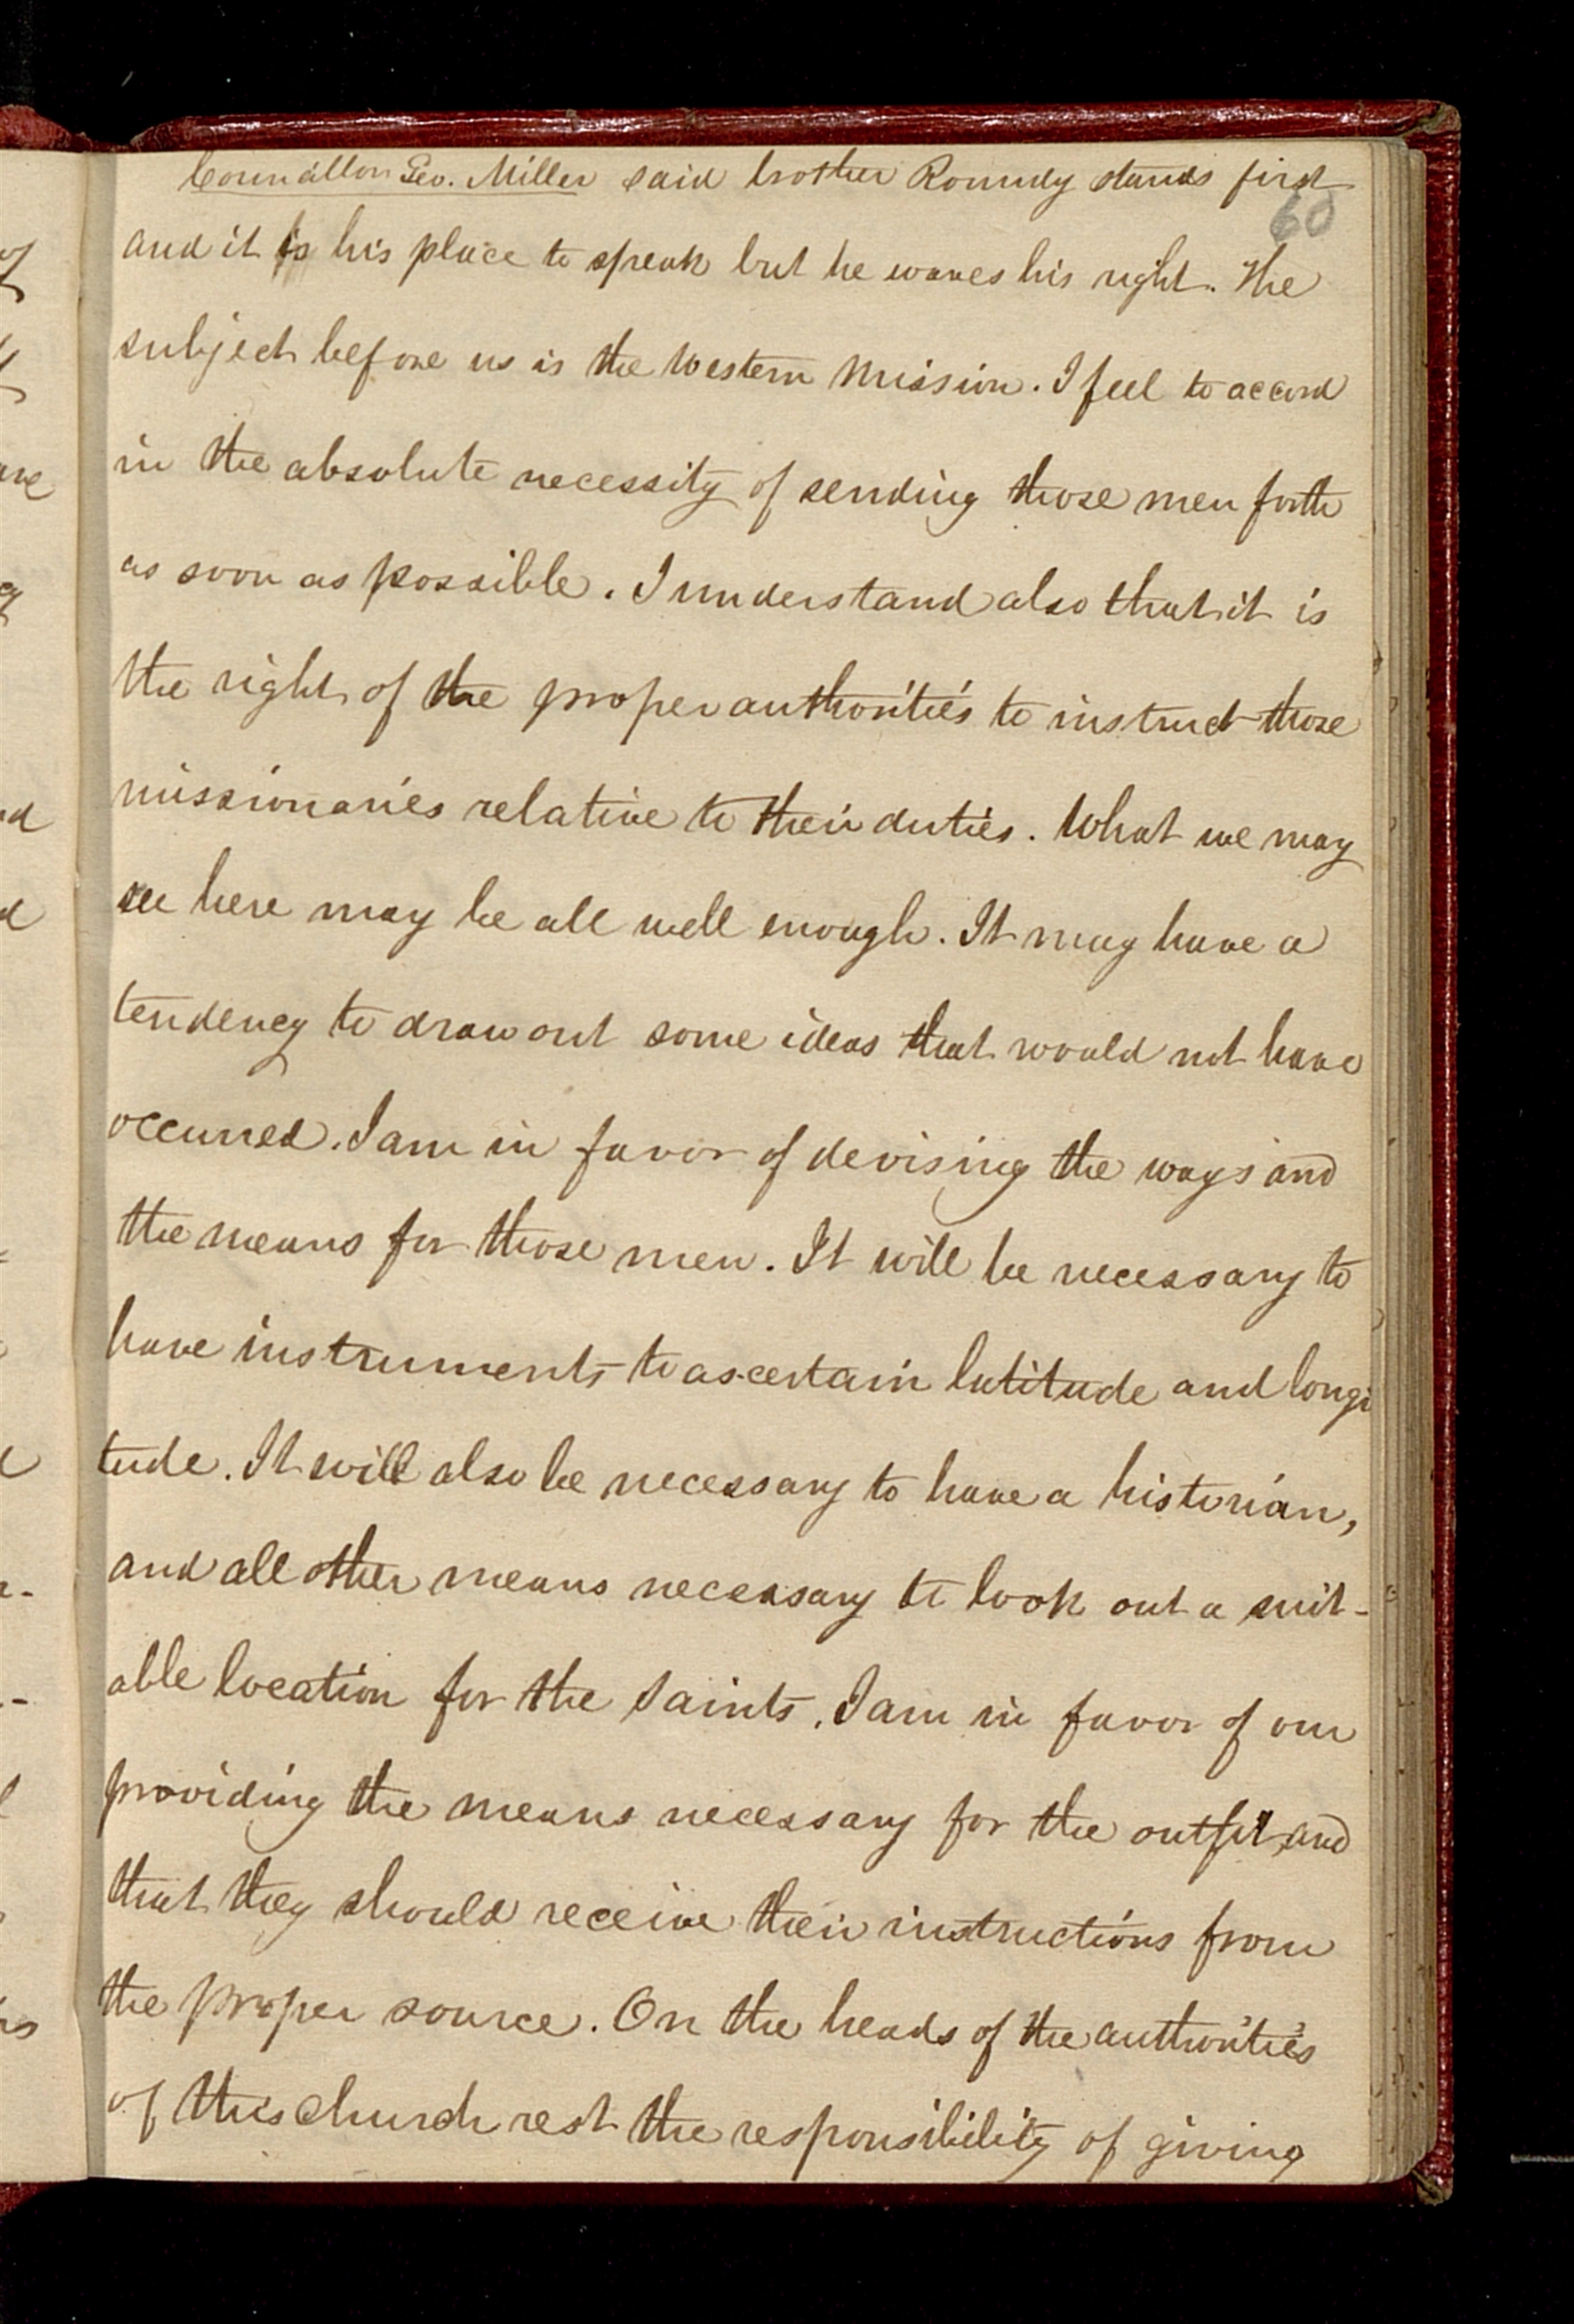 Councillor Geo. Miller said brother Romndy stands first
60
and it is his place to speak but he waves his right. The
subject before us is the Western Mission. I feel to accord
in the absolute necessity of sending those men forth
as soon as possible. I understand also that it is
the right of the proper authorities to instruct those
missionaries relative to their duties. What we may
see here may be all well enough. It may have a
tendency to draw out some ideas that would not have
occurred. I am in favor of devising the ways and
the means for those men. It will be necessary to
have instruments to ascertain latitude and longi
tude. It will also be necessary to have a historian,
and all other means necessary to look out a suit-
able location for the saints. I am in favor of our
providing the means necessary for the outfit and
that they should receive their instructions from
the proper source. On the heads of the authorities
of this church rest the responsibility of giving